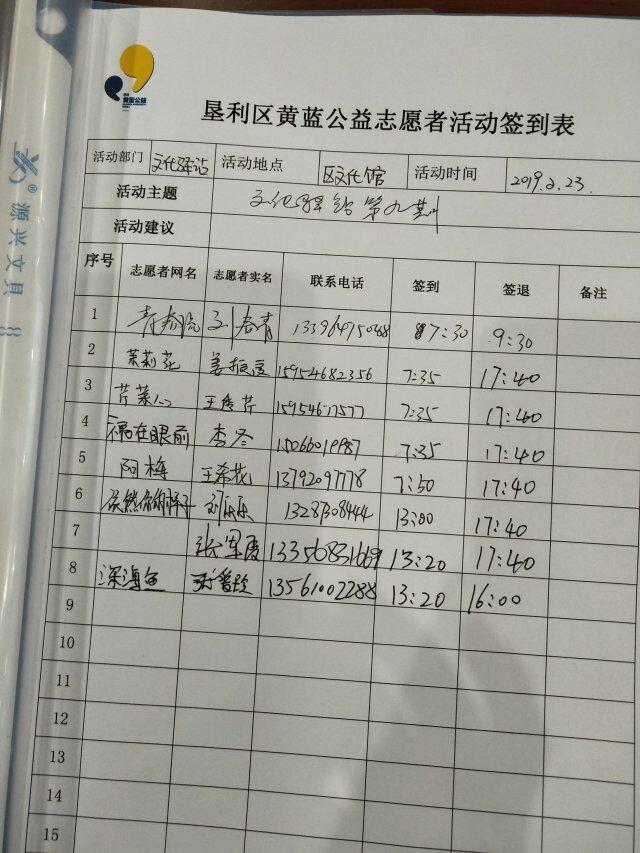 黄蓝公益
源兴文具
垦利区黄蓝公益志愿者活动签到表
活动部门 文化驿站 活动地点 区文化馆 活动时间 2019.2.23.
活动主题 文化驿站第九期
活动建议
序号 志愿者网名 志愿者实名 联系电话 签到 签退 备注
1 刘春青 7:30 9:30
2 茉莉花 15954682356 7:35 17:40
3 芹菜心 7:35 17:40
4 幸福在眼前 李冬 7:35 17:40
5 阿梅 王希花 13792097778 7:50 17:40
6 刘乐乐 13287308444 13:00 17:40
7 张军霞 13356831669 13:20 17:40
8 深海鱼 13561002288 13:20 16:00
9
10
11
12
13
14
15